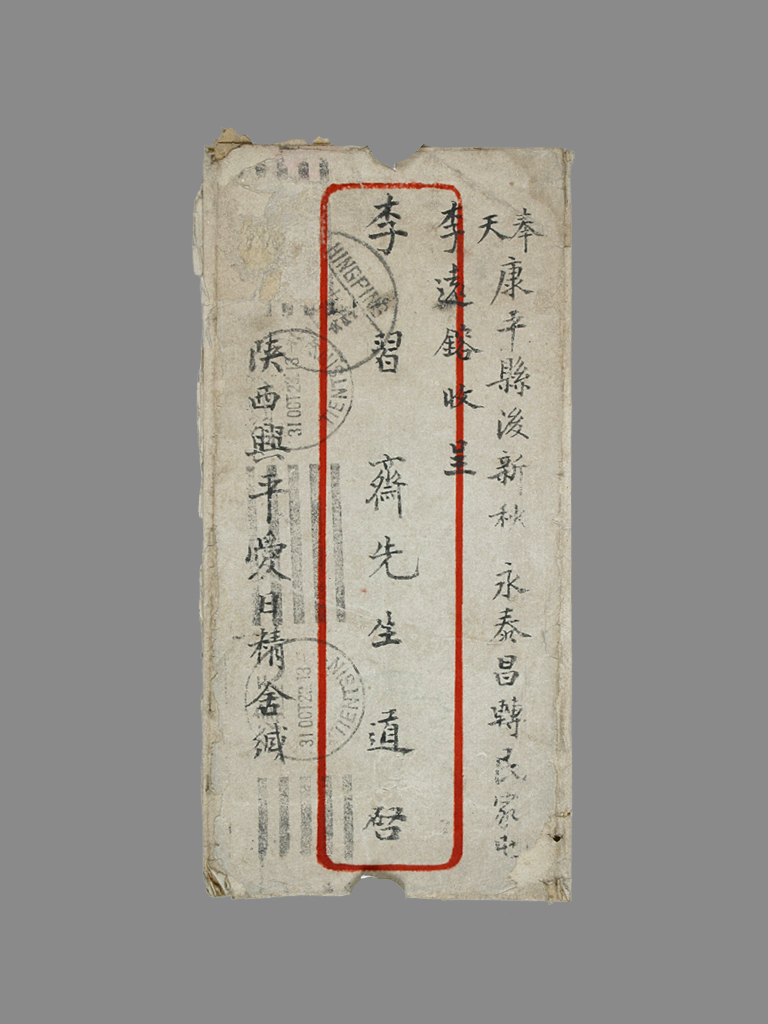 奉天康平縣後新秋 永泰昌轉民家屯
李遠鎔收呈
李習齋先生道啓
陝西興平愛日精舍緘
HINGPING
TIENTSIN
31 OCT 22 13
TIENTSIN
31 OCT 22 13